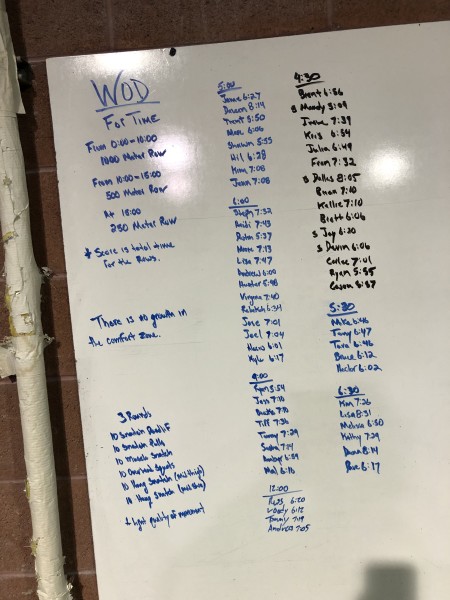 WOD
For Time
From 0:00-10:00
1000 Meter Row
From 10:00-15:00
500 Meter Row
At 15:00
250 Meter Row
* Score is total time
for the Rows.
There is no growth in
the comfort zone.
3 Rounds
10 Snatch Deadlift
10 Snatch Pulls
10 Muscle Snatch
10 Overhead Squats
10 Hang Snatch (mid thigh)
10 Hang Snatch
* Light quality of movement
5:00
6:27
8:14
Trent 5:50
6:06
Shawn 5:55
Hil 6:28
Kim 7:08
Jenn 7:08
6:00
Steph 7:32
Heidi 7:43
5:37
7:13
Lisa 7:47
Andrew 6:00
Hunter 5:48
Virginia 7:40
Rebekah 6:34
Jose 7:01
Joel 7:04
6:01
Kyle 6:17
9:00
Ryan 5:54
Jen 7:10
7:10
Tiff 7:36
Tammy 7:29
Amber 6:59
Mal 6:16
12:00
Russ 6:20
Woody 6:12
Tommy 7:19
Andrea 7:05
4:30
Brent 6:56
s Mandy 8:09
Irene 7:39
Kris 6:54
Julia 6:49
Fran 7:32
s Dallas 8:05
Brian 7:10
Kallie 7:10
Brett 6:06
s Jay 6:20
s Devin 6:06
Carlee 7:01
Ryan 5:55
Cason 5:57
5:30
Mike 6:46
Tony 6:47
6:46
Bruce 6:12
Hector 6:02
6:30
Kim 7:26
Lisa 8:31
Melissa 6:50
Kathy 7:29
8:14
6:17